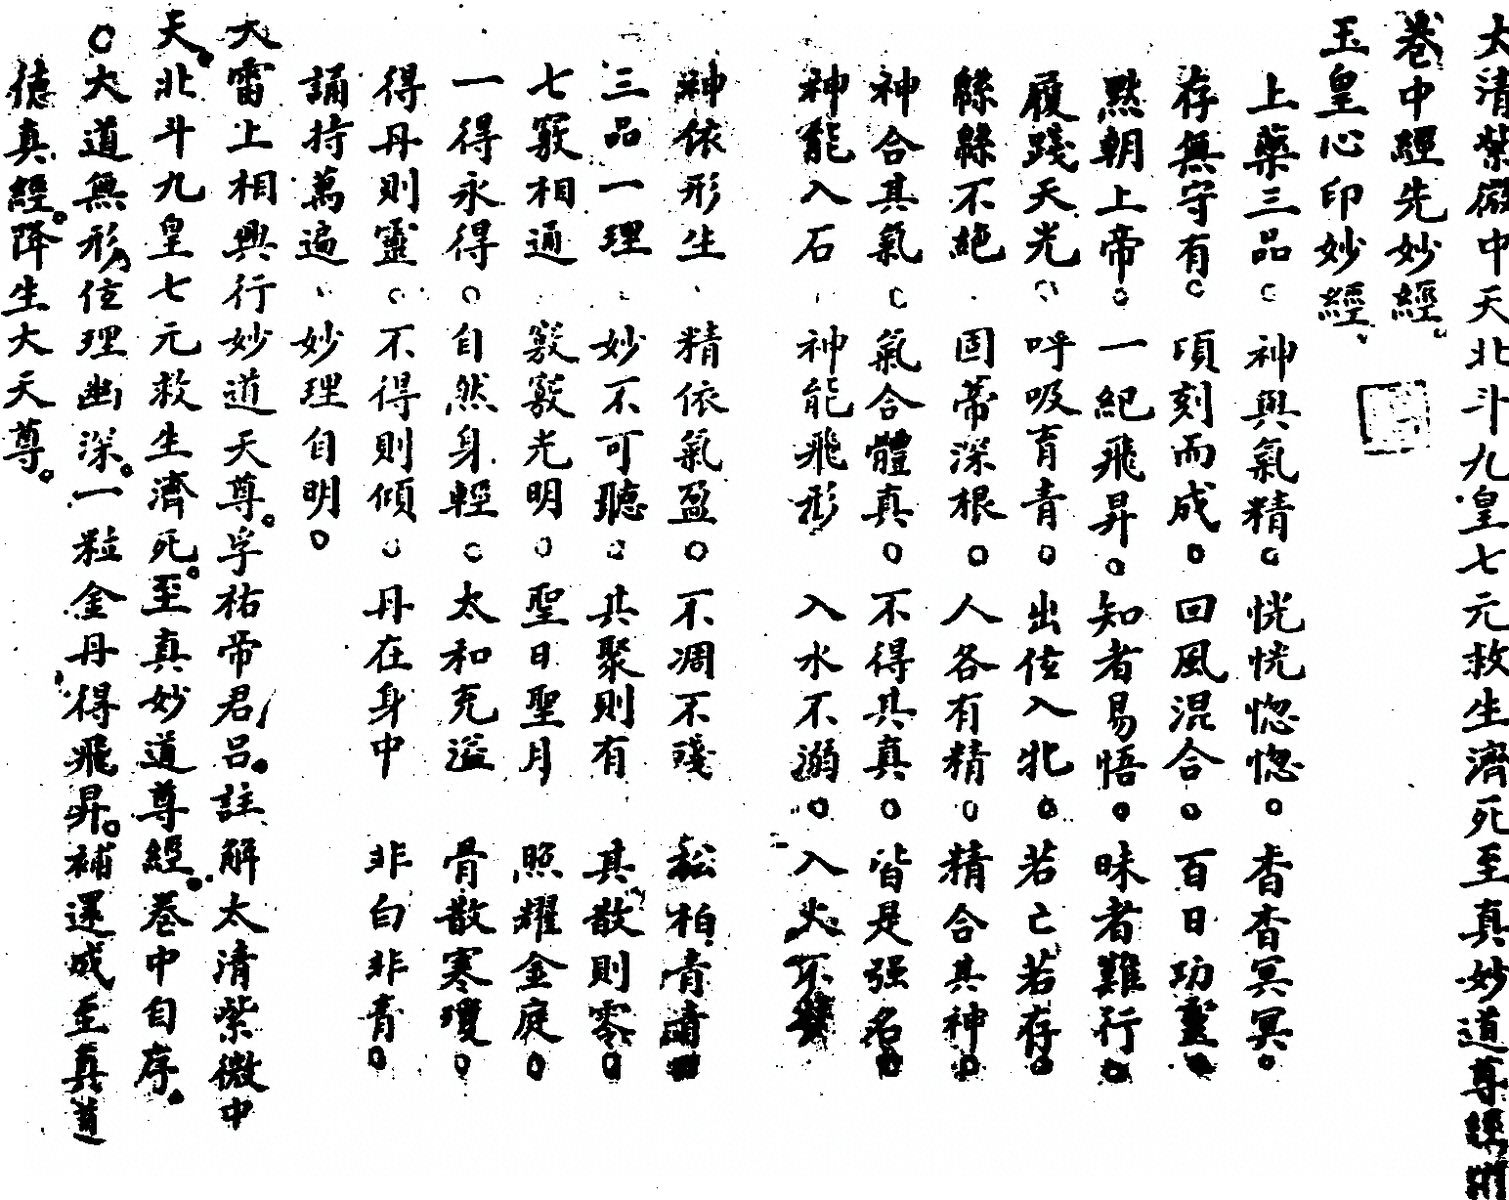 太清紫微中天北斗九皇七元救生濟死至真妙道尊經
卷中經先妙經
玉皇心印妙經
上藥三品。神與氣精。恍恍惚惚。杳杳冥冥。
存無守有。頃刻而成。回風混合。百日功靈。
默朝上帝。一紀飛昇。知者易悟。昧者難行。
履踐天光。呼吸育青。出伭入牝。若亡若存。
綿綿不絕 固蒂深根。人各有精。精合其神。
神合其氣。氣合體真。不得其真。皆是强名。
神能入石 神能飛形 入水不溺。入火不焚
神依形生 精依氣盈。不凋不殘 松柏青青
三品一理 妙不可聽。其聚則有 其散則零。
七竅相通 竅竅光明。聖日聖月 照耀金庭。
一得永得。自然身輕。太和充溢 骨散寒瓊。
得丹則靈。不得則傾。丹在身中 非白非青。
誦持萬遍 妙理自明。
大雷上相興行妙道天尊。孚祐帝君呂。註解太清紫微中
天北斗九皇七元救生濟死。至真妙道尊經。卷中自序。
○大道無形伭理幽深。一粒金丹得飛昇。補還成至真道
德真經。降生大天尊。